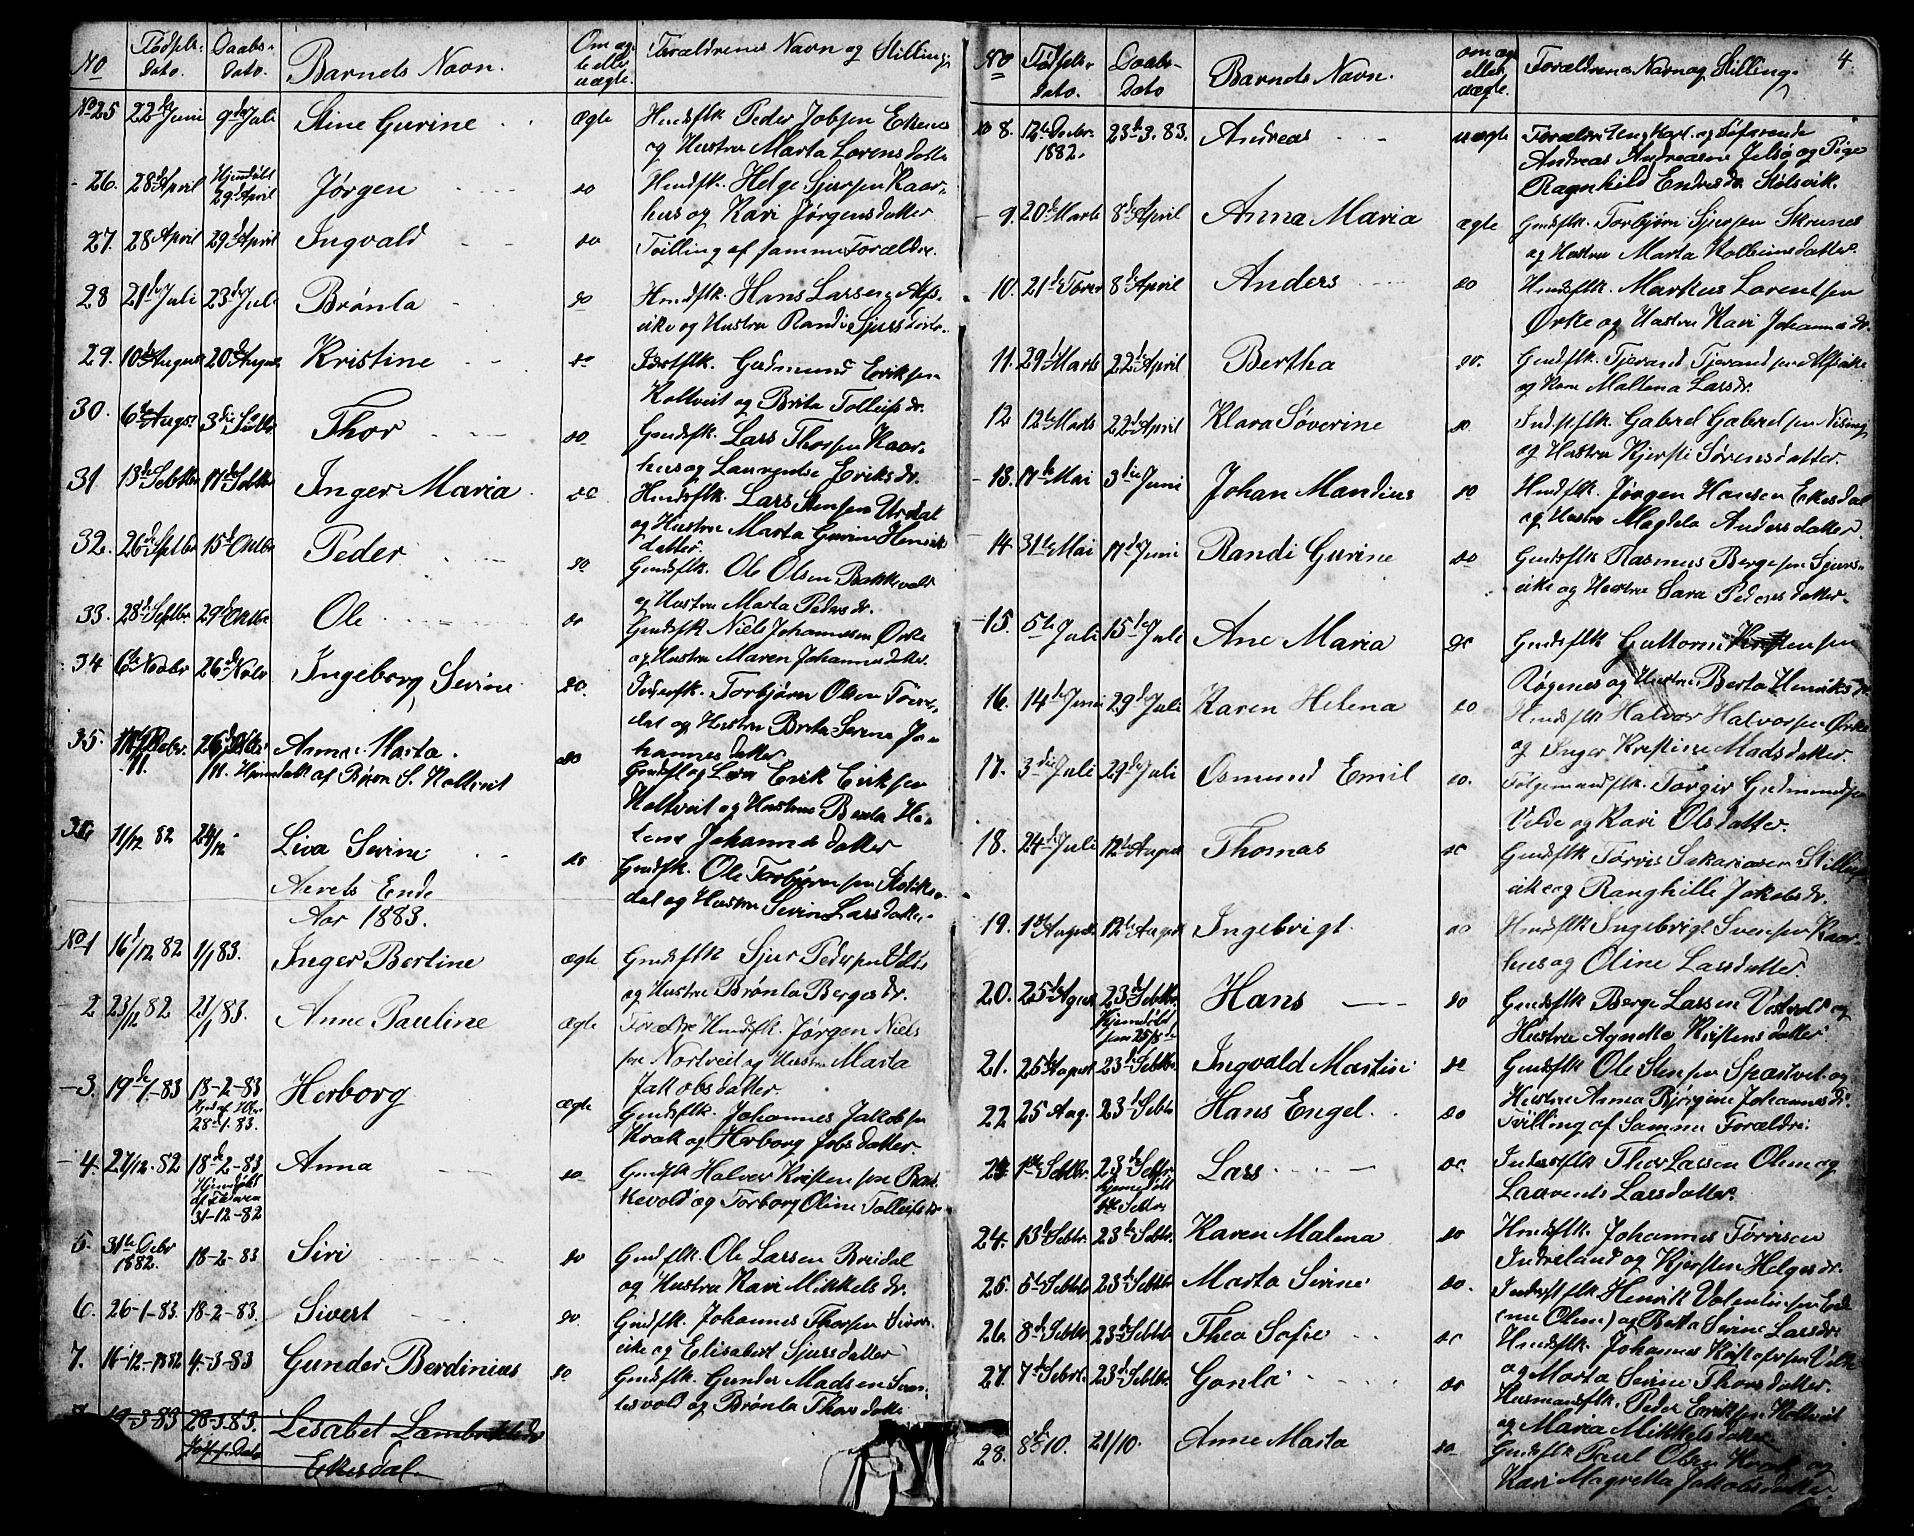 No Fødsels- Dato. Daabs- Dato. Barnets Navn. Om æg- te eller uægte. Forældrenes Navn og Stilling
No 25 22de Juni 9de Juli Stine Gurine ægte Huusflk Peder Jobsen Ekenes
og Hustru Marta Lorensdatter
26. 28de April Hjemdøbt 29 April Jørgen do Huusflk. Helge Sjursen Kaar-
hus og Kari Jørgensdatter
27. 28 April 29de April Ingvald do Tvilling af samme Forældre.
28 21de Juli 23de Juli Brønla do Huusflk. Hans Larsen Alfs-
vike og Hustru Randi Sjursdotter
29. 10de August 20de August Kristine do Gudmund Eriksen
Koltveit og Brita Tolleifsdr.
30. 6te Augst 3die Septbr Thor do Gaudsflk. Lars Thorsen Kaar-
hus og Laurentse Eriksdr.
31 13de Septbr 17de Septbr Inger Maria do Huusflk. Lars Stensen Urdal
og Hustru Marta Gurine Henriks
datter.
32. 26de Septbr 15de Oktbr Peder do Gaudsflk. Ole Olsen Bakkevold
og Hustru Marta Pedersdr.
33. 28de Septbr 29de Oktbr Ole do Gaudsflk Niels Johannesen Ørke
og Hustru Maren Johannesdatter.
34 6te Novbr 26de Novbr Ingeborg Sevine do. Torbjørn Olsen
dal og Hustru Brita Serine Jo-
hannesdatter
35. 11. Anna Marta. do Erik Eriksen
Hjemdøbt af Bjørn S. Koltveit
Koltveit og Hustru Berta He-
lene Johannesdatter
36 11/12 82 24/12 Liva Sevine do Gaudsflk. Ole Torbjørnsen
dal og Hustru Sevine Larsdatter
Aarets Ende
Aar 1883.
No 1 16/12 82 1/1 83. Inger Bertine ægte Gaudsflk Sjur Pedersen
og Hustru Brønla Bergesdr.
2 23/12 82 21/1 83. Anne Pauline ægte Forældre Huusflk. Jørgen Niels
sen Nortveit og Hustru Marta
Jakobsdatter.
3. 19de 1-83 18-2-83 Herborg ægte Gaudsflk. Johannes Jakobsen
28-1.83.
Kvak og Herborg Jobsdatter.
4. 27/12. 82 18de-2-83 Anna do Gaudsflk Halvor Kristensen Bak-
Hjemdøbt af Faderen
31-12-82
kevold og Torborg Oline Tolleifsdr
5. 31te Debr 1882. 18-2-83 Siri do Gaudsflk. Ole Larsen Breidal
og Hustru Kari Mikkelsdr.
6. 26-1-83. 18-2-83. Sivert do. Gaudsflk. Johannes Thorsen
vike og Elisabet Sjursdatter
7. 16-12.-1882 4-3-83 Gunder Berdinius do Gaudsflk. Gunder Madsen
levold og Brønla Thorsdatter
19-3-83 28-3.83. Lisabet Lambrektsdr
Ekesdal.
No Fødsels- Dato. Daabs- Dato Barnets Navn. om æg eller uægte. Forældrenes Navn og Stilling. 4
8. 12te Debr. 1882. 23de 3. 83. Andreas uægte Forældre Ungkarl og Søfarende
Andreas Andreasen Jelsø og Pige
Ragnhild Endresdr. Stølsvik.
9. 20de Marts 8de April Anna Maria ægte Gaudsflk. Torbjørn Sjursen
og Hustru Marta Kolbeinsdatter.
10. 21de 8de April Anders do Huusflk. Markus Lorentsen
Ørke og Hustru Kari Johannesdr.
11. 29de Marts 22de April Bertha do. Gaudsflk. Tjerand Tjerandsen Alfsvike
og Kone Mallena Larsdr.
12 12te Marts 22de April Klara Søverine do Gabrel Gabrelsen
og Hustru Kjersti Sørensdatter.
13. 17de Mai 3die Juni Johan Mandius do Huusflk. Jørgen Hansen Ekesdal
og Hustru Magdela Andersdatter.
14 31te Mai 17de Juni Randi Gurine do Gaudsflk Rasmus Bergesen Sjurs-
vike og Hustru Sara Pedersdatter.
15. 5te Juli 15de Juli Ane Maria do Gaudsflk Guttorm
Røgenes og Hustru Berta Henriksdr
16. 14de Juni 29de Juli Karen Helena do Huusflk Halvor Halvorsen Ørke
og Inger Kristine Madsdatter.
17. 3die Juli 29de Juli Osmund Emil do. Torger Gudmundsen
Velde og Kari Olsdatter.
18. 24de Juli 12te August Thomas do Gaudsflk Tørris Sakariasen
vike og Ranghille Jakobsdr.
19. 1ste August 12te August Ingebrigt do Huusflk Ingebrigt Svensen Kaar-
hus og Oline Larsdatter.
20. 25de August 23de Septbr. Hans do Gaudsflk Berge Larsen Vestvold og
Hjemdøbt
Hustru Agnette Kristensdatter
21. 25de August 23de Septbr. Ingvald Martin do Gaudsflk Ole Stensen og
Hustru Anna Bjørgine Johannesdr.
22 25 Aug. 23de Septbr Hans Engel. do Tvilling af Samme Forældre
1ste Septbr. 23de Septbr Lars do Thor Larsen Olene og
Hjemmedøbt
Laurents Larsdatter.
24. 13de Septbr. 23de Septbr. Karen Malena do Huusflk. Johannes Tørrisen
Indreland og Kjersten Helgesdr.
25. 5te Septbr 23de Septbr Marta Sevine do. Henrik Valentinsen
(nu Olene) og Berta Sevine Larsdr
26. 8de Septbr 23de Septbr Thea Sofie do Huusflk. Johannes Kristofersen
og Marta Serine Thorsdatter.
27. 7de Septbr. 23de Septbr. Gonla do Husmandsflk. Peder Eriksen Koltveit
og Maria Mikkelsdatter
28. 8de 10. 21/10. Anne Marta do Gaudsflk Paul Olsen Kvak og
Kari Magretta Jakobsdatter.